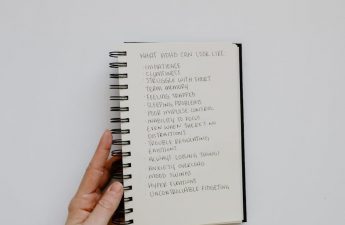 WHAT ADHD CAN LOOK LIKE:
· IMPATIENCE
· CLUMSINESS
· STRUGGLE WITH SHORT
TERM MEMORY
· FEELING TRAPPED
· SLEEPING PROBLEMS
· POOR IMPULSE CONTROL
· INABILITY TO FOCUS
EVEN WHEN THERE'S NO
DISTRACTIONS
· TROUBLE REGULATING
EMOTIONS
· ALWAYS LOSING THINGS
· ANXIETY OVERLOAD
· MOOD SWINGS
· HYPER FIXATIONS
· UNCONTROLLABLE FIDGETING